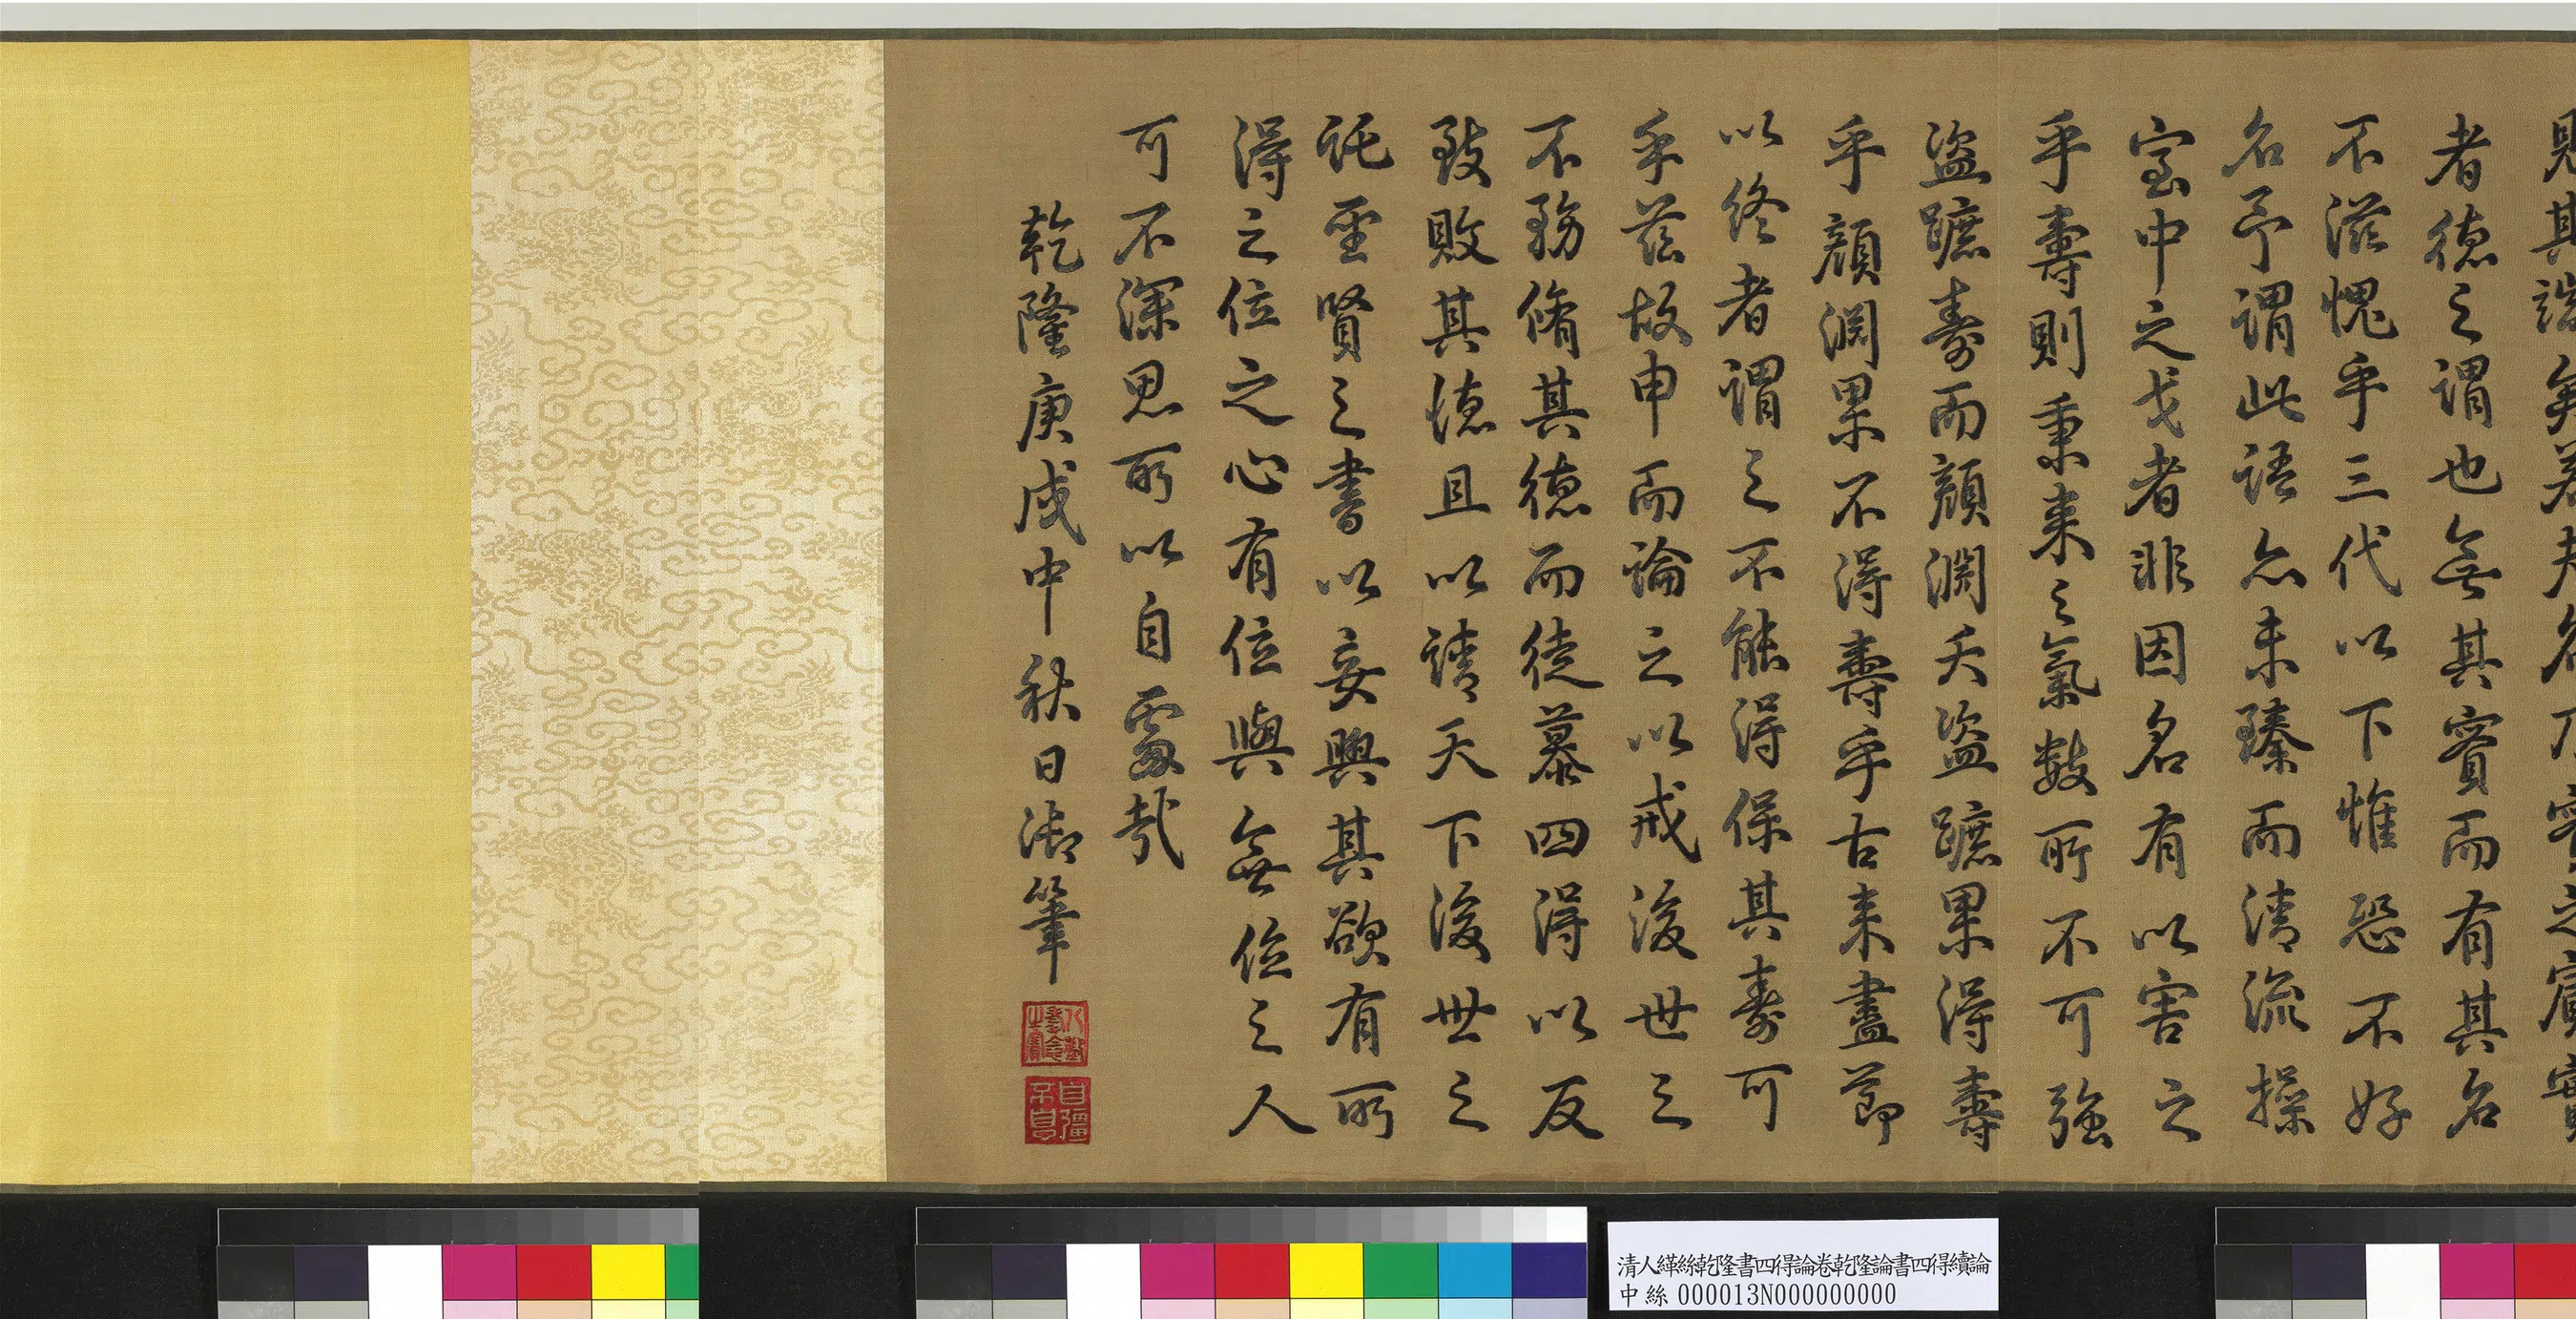 其誤矣若夫名乃實之賓實
者德之謂也無其實而有其名
不滋愧乎三代以下惟恐不好
名予謂此語亦未臻而清流操
室中之戈者非因名有以害之
乎壽則秉來之氣數所不可強
盜蹠壽而顏淵夭盜蹠果得壽
乎顏淵果不得壽乎古來盡節
以終者謂之不能得保其壽可
乎茲故申而論之以戒後世之
不務脩其德而徒慕四得以反
致敗其德且以請天下後世之
託聖賢之書以妄興其欲有所
得之位之心有位與無位之人
可不深思所以自處哉
乾隆庚戌中秋日御筆
八徵耄念之寶
自彊不息
清人緙絲乾隆書四得論卷乾隆論書四得續論
中絲 000013N000000000